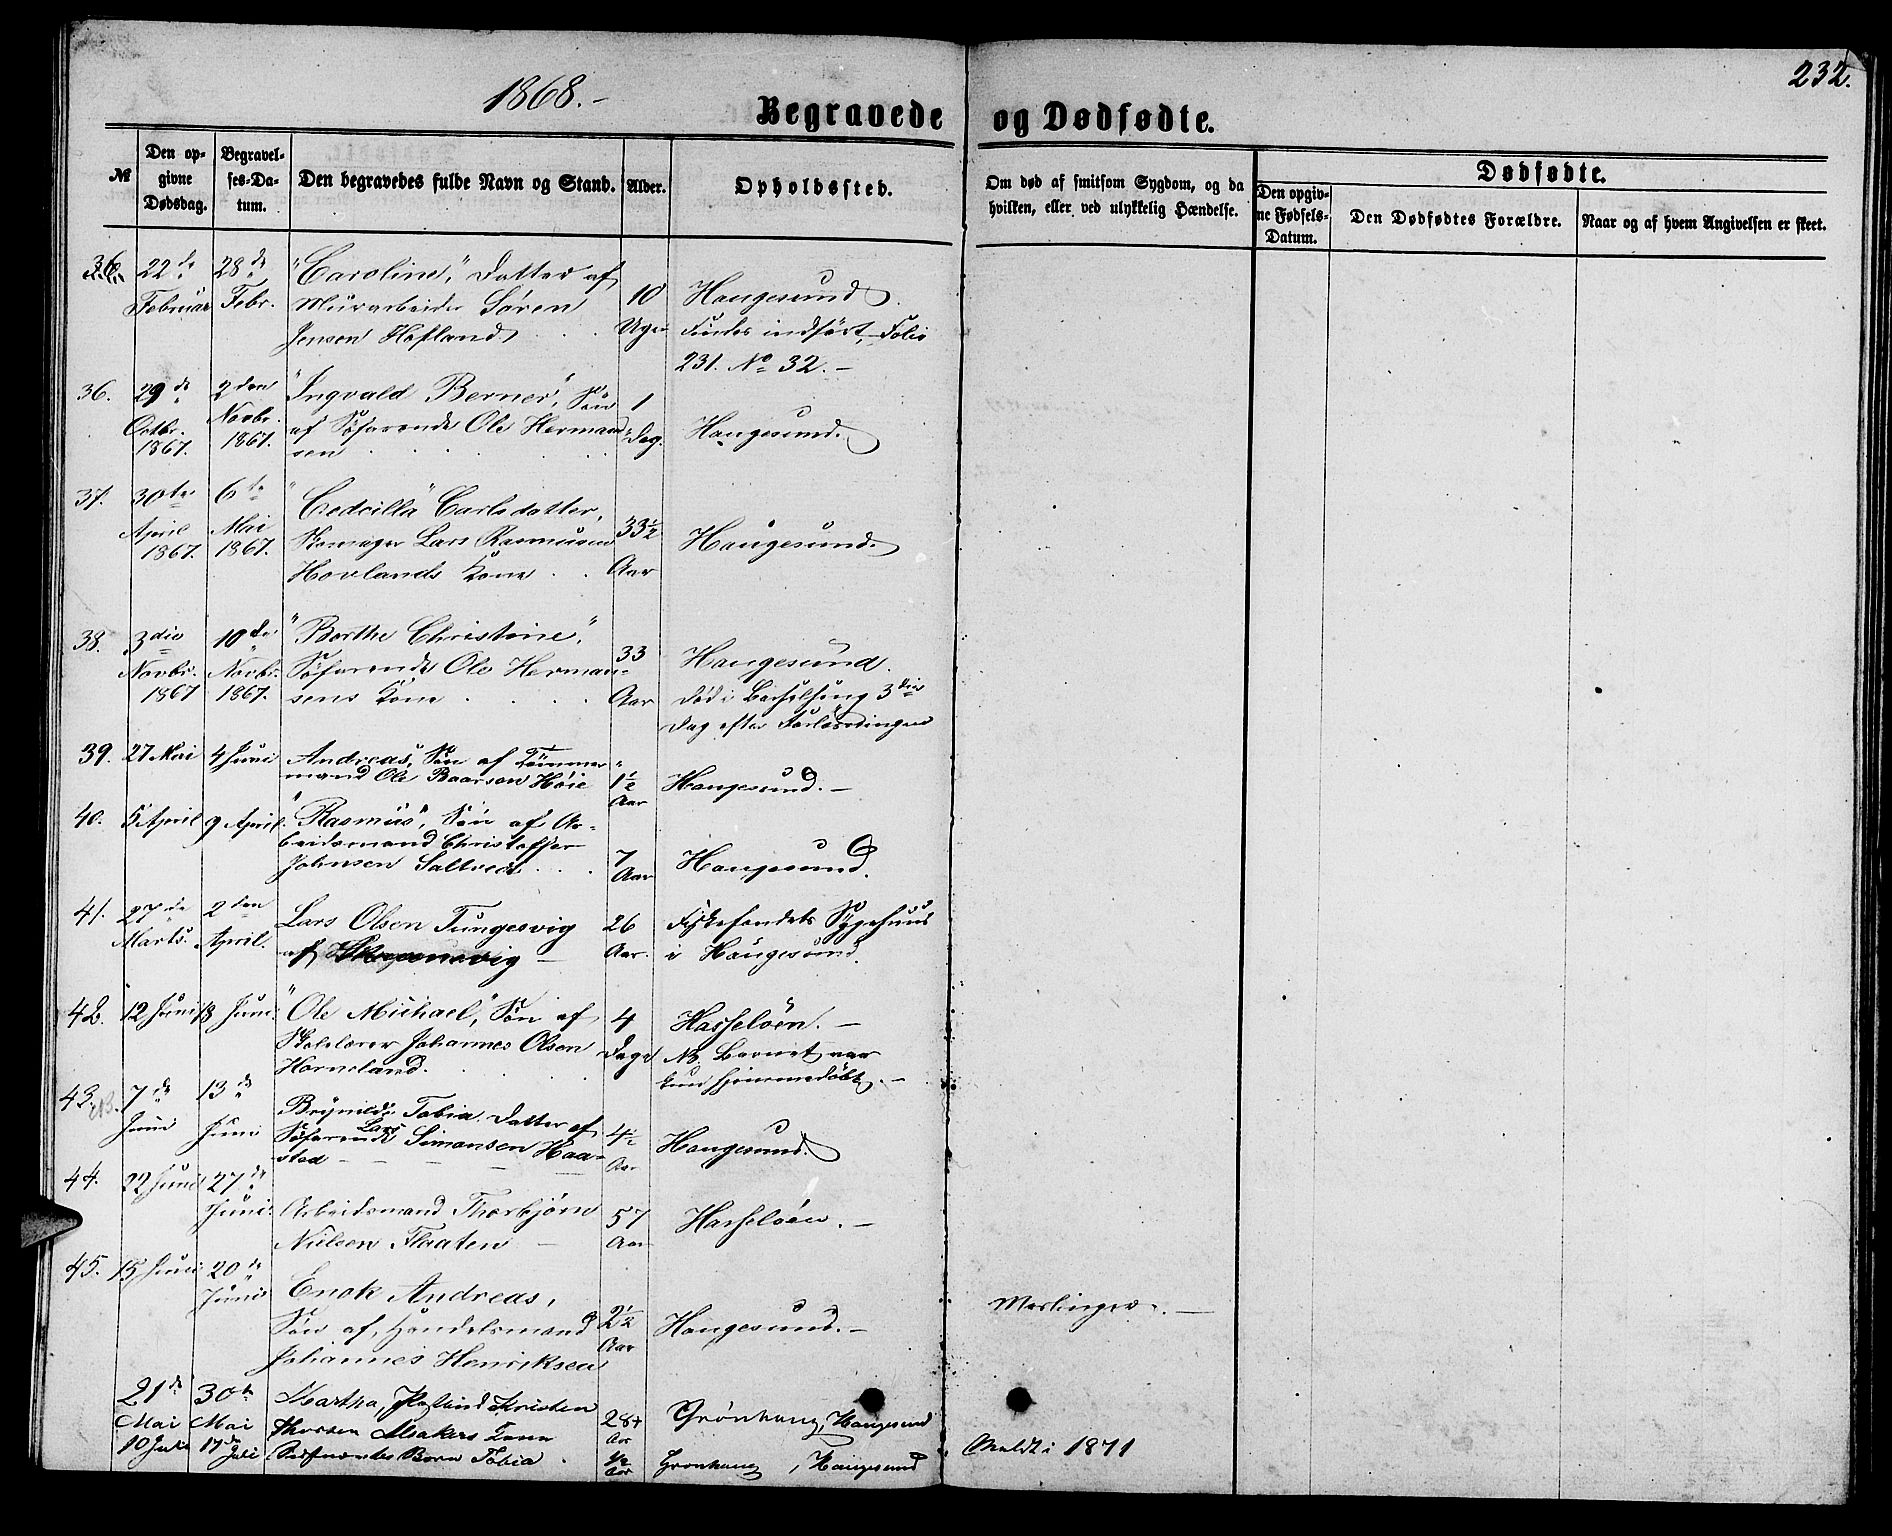 1868.-
232.
Begravede og Dødfødte.
№
Den opgivne Dødsdag.
Begravelses-Datum.
Den begravedes fulde Navn og Stand.
Alder.
Opholdssted.
Om død af smitsom Sygdom, og da hvilken, eller ved ulykkelig Hændelse.
Dødfødte.
Den opgivne Fødsels-Datum.
Den Dødfødtes Forældre.
Naar og af hvem Angivelsen er skeet.
22de Februar 28de Febr. "Caroline", Datter af
Murarbeider Søren
Jensen Hofland 10 Uger Haugesund.
Findes indført, Folio
231. No 32.-
36. 29de Octbr. 1867. 2den Novbr. 1867. "Ingvald Berner", Søn
af Søfarende Ole Herman
sen 1 Dag. Haugesund.
37. 30te April 1867. 6te Mai 1867. "Cedcilla" Carlsdatter,
Skomager Lars Rasmusen
Hovlands Kone 33½ Aar Haugesund.
38. 3die Novbr. 1867 10de Novbr. 1867. "Berthe Christine",
Søfarende Ole Herman-
sens Kone 33 Aar Haugesund.
Død i Barselseng 3die
Dag efter Forløsningen
39. 27 Mai 4 Juni Andreas, Søn af Tømmer-
mand Ole Baarsen Høie 1½ Aar Haugesund.-
40. 5 April 9 April. "Rasmus", Søn af Ar-
beidsmand Christoffer
Johnsen Saltved 7 Aar Haugesund.
41. 27de Marts. 2den April. Lars Olsen Tungesvig
af 26 Aar. Fiskefondets Sygehuus
i Haugesund.
42. 12 Juni 18 Juni. "Ole Michael", Søn af
Skolelærer Johannes Olsen
Horneland. 4 Dage Hasseløen.-
NB. Barnet var
kun hjemmedøbt.-
43. 7de Juni 13de Juni Brynilde Tobia Datter af
Søfarende Lars Simonsen Haa-
sted 4½ Aar Haugesund.
44. 22 Juni 27de Juni. Arbeidsmand Thorbjørn
Nielsen Flaaten - 57 Aar Hasseløen.-
45. 15 Juni 20de Juni Enok Andreas,
Søn af Handelsmand
Johannes Henriksen 2½ Aar Haugesund.- Meslinger.-
21de Mai 30te Mai Martha, Kristen
Thorsen Kone 28 Aar Grønhaug, Haugesund
10 Juli 17de Juli Børn Tobia. ½ Aar Grønhaug, Haugesund Meldt i 1871